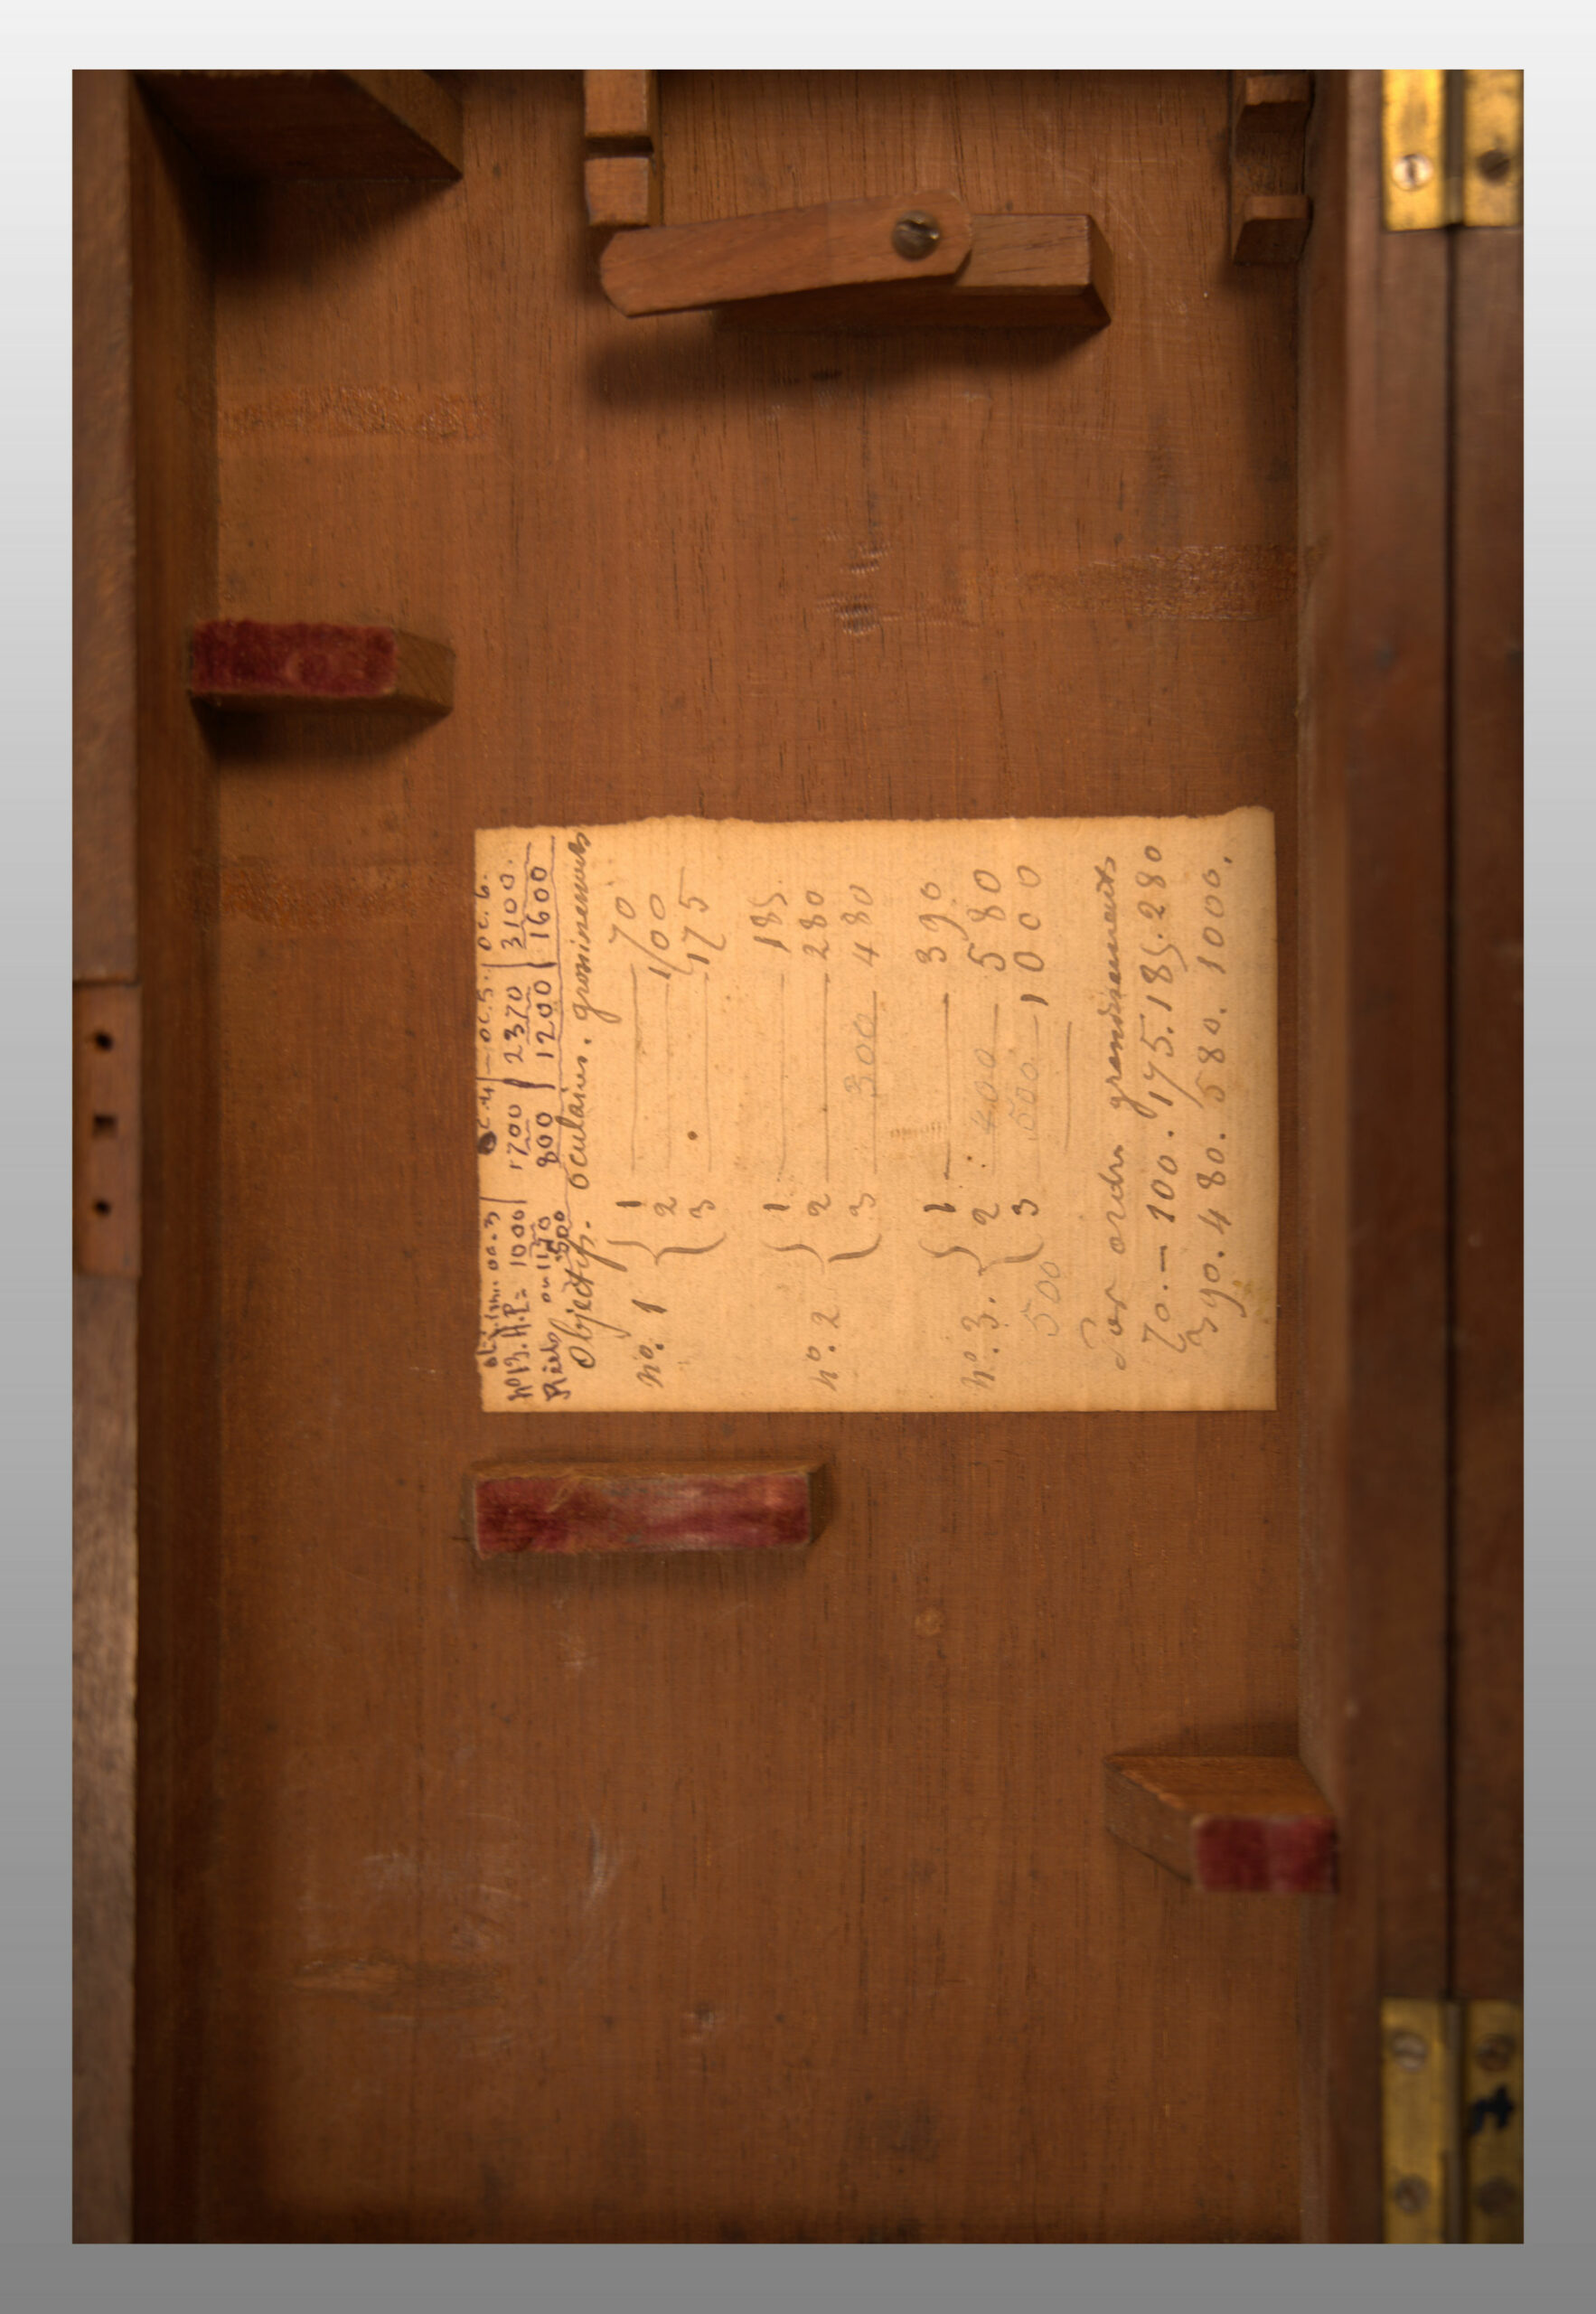 obj. im. oc. 3 | oc. 4 | — oc. 5. | oc. 6.
No 13. A.P. = 1000 | 1700 | 2370 | 3100.
ou 1120
500 | 800 | 1200 | 1600
Objectifs. oculaires. grossissements
no. 1 { 1 — 70
2 — 100
3 — 175
no. 2 { 1 — 185.
2 — 280
3 300 — 480
no. 3. { 1 — 390
2 400 — 580
3 500 — 1000
500
Par ordre grandissements
70. — 100. 175. 185. 280
390. 480. 580. 1000.